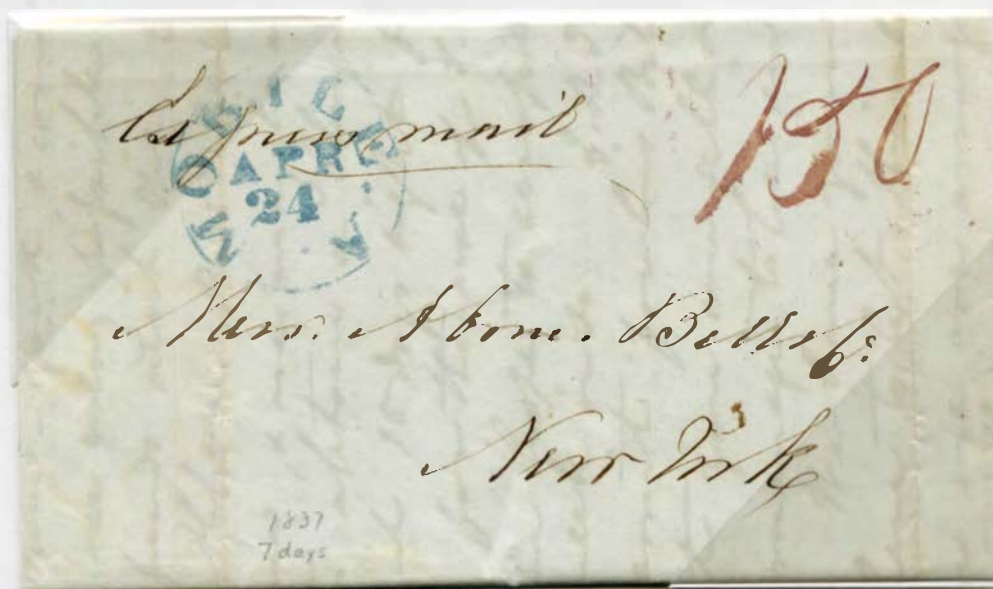 Express mail
150
MOBILE
APR
24
Mess. Abm. Bell & Co:
New York
1837
7 days